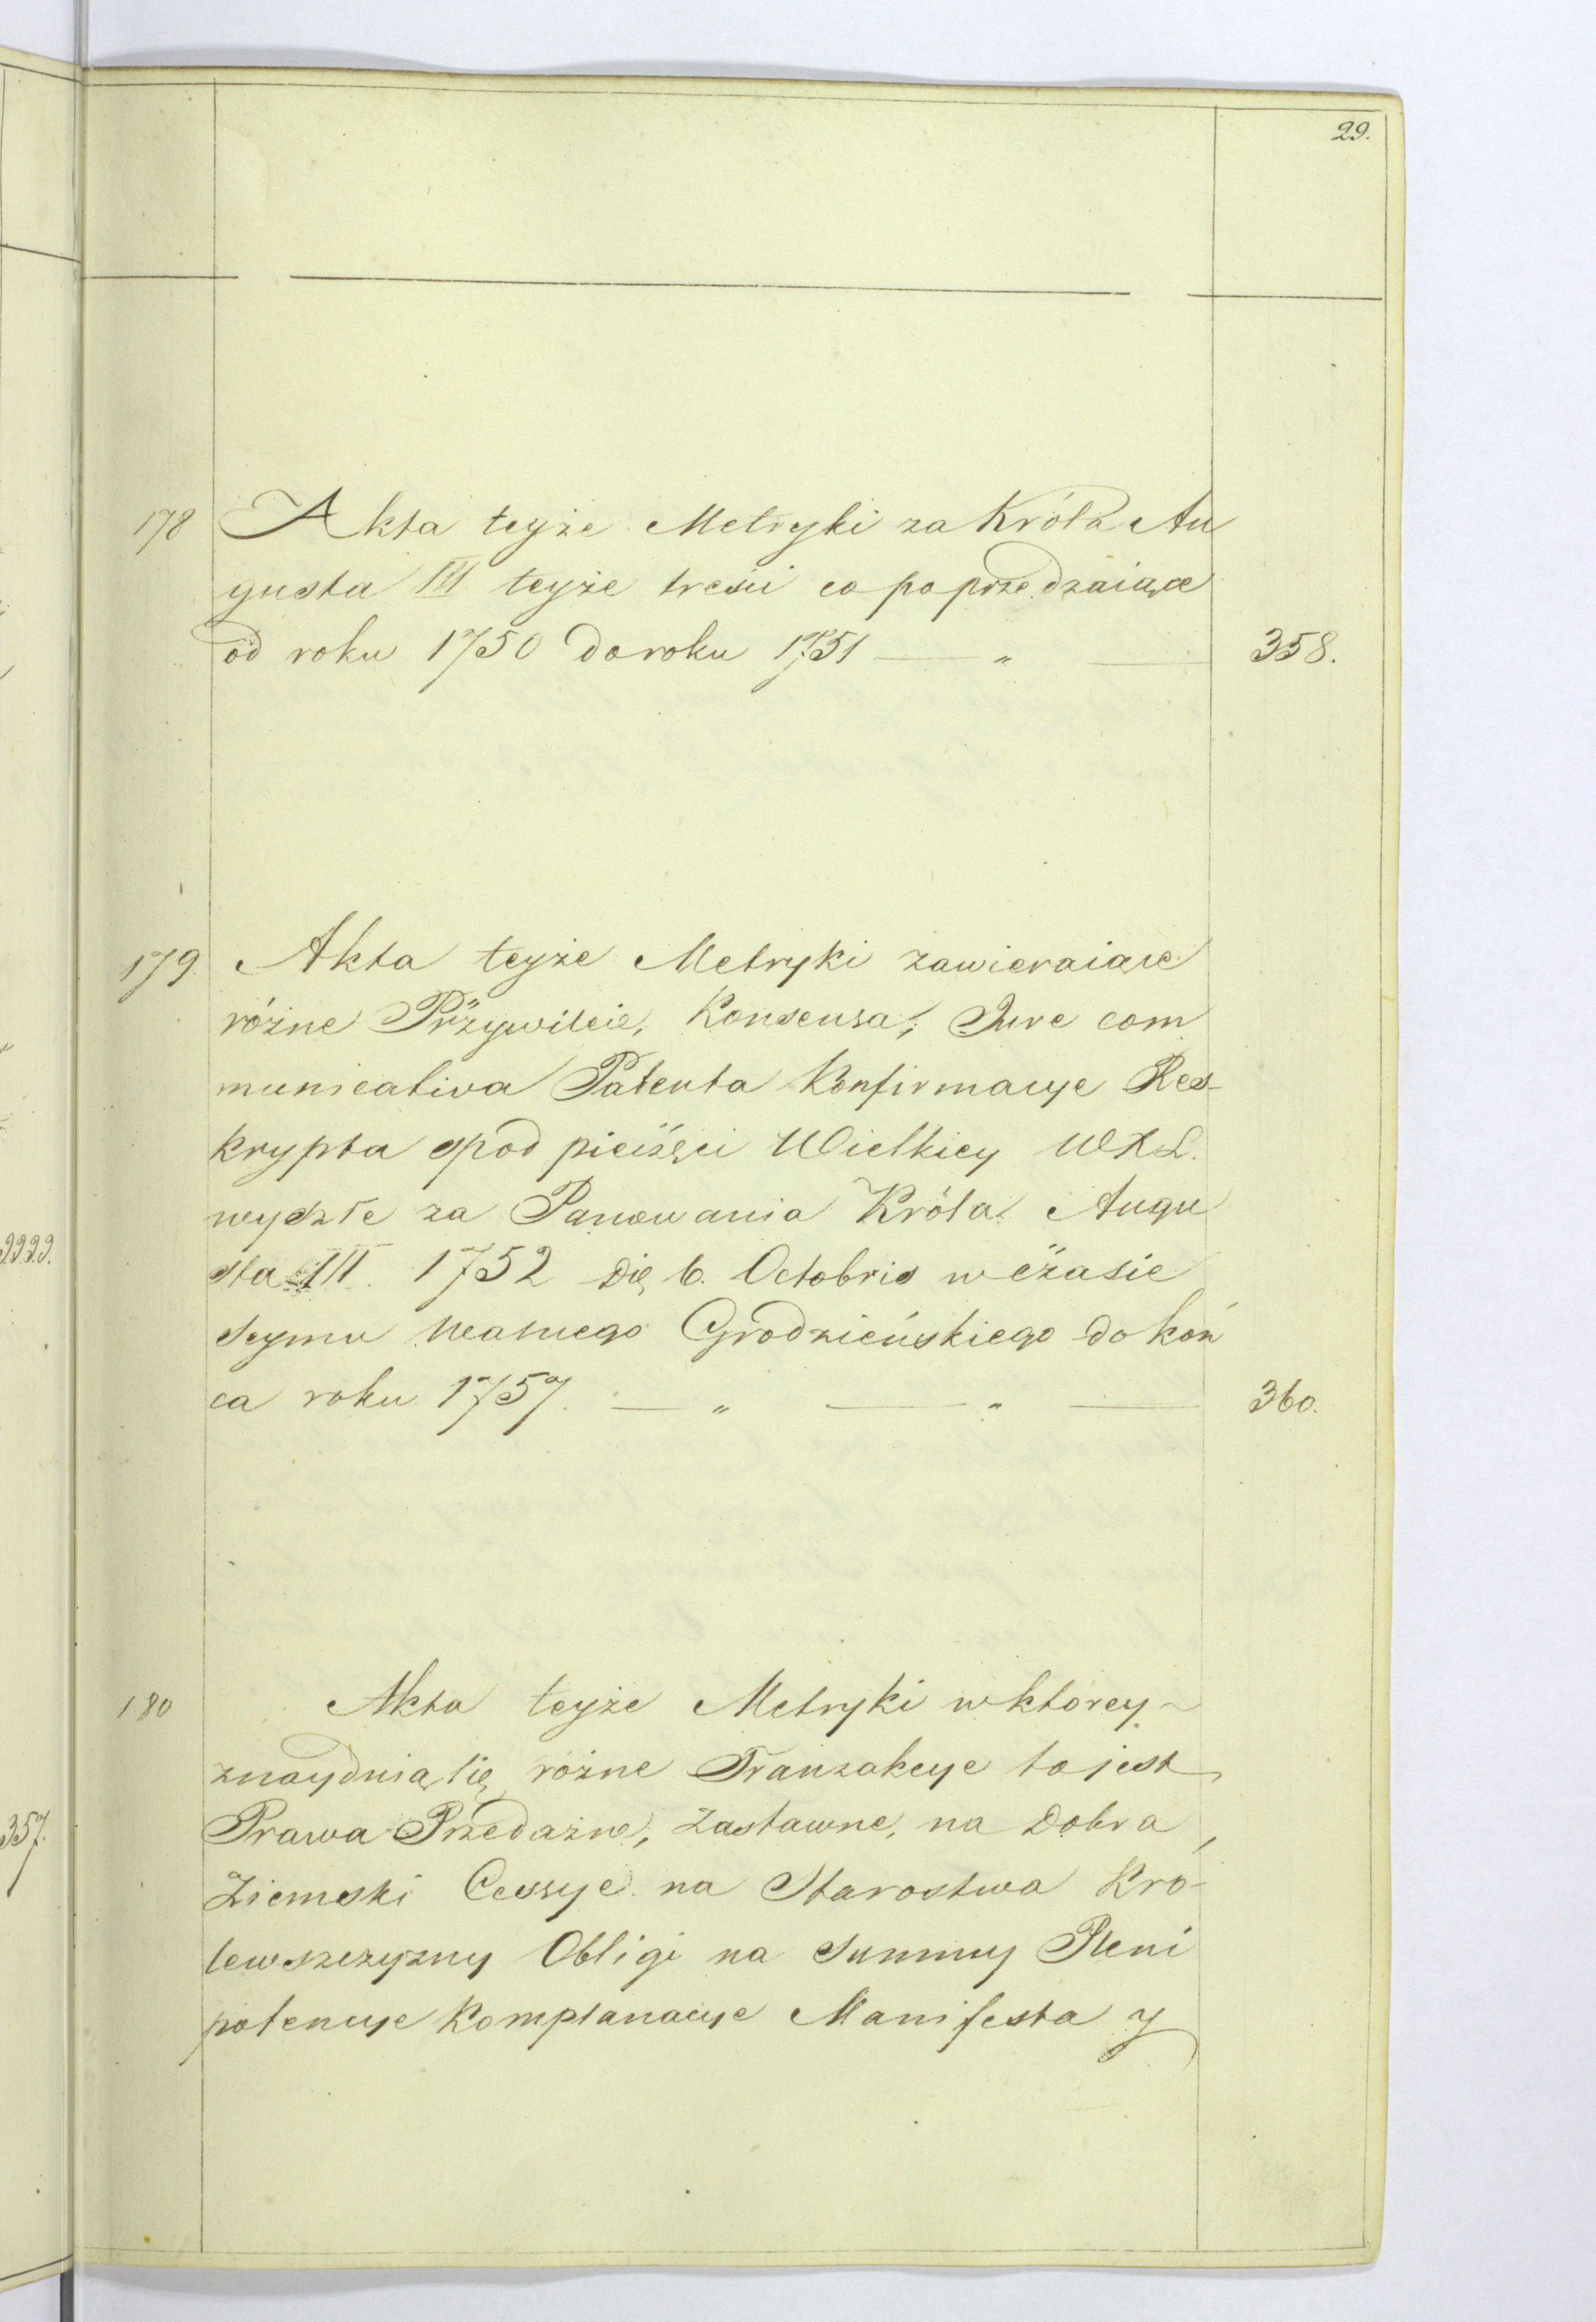 29.
178 Akta teyże Metryki za Króla Au
gusta III teyże treści co poprzedzaiące
od roku 1750 do roku 1751 — „ — 358.
179. Akta teyże Metryki zawieraiące
różne Przywileie, Konsensa, Jure com
municativa Patenta Konfirmacye Res-
krypta spod pieczęci Wielkiey WXL.
wyszłe za Panowania Króla Augu
sta III. 1752 Die 6. Octobris w czasie
Seymu Walnego Grodzieńskiego do koń
ca roku 1757. — „ — „ — 360.
180 Akta teyże Metryki w ktorey
znayduią się różne Tranzakcye to jest
Prawa Przedażne, Zastawne, na Dobra,
Ziemski Cessye na Starostwa Kró-
lewszczyzny Obligi na Summy Pleni
potencye Komplanacye Manifesta y
9999.
357.